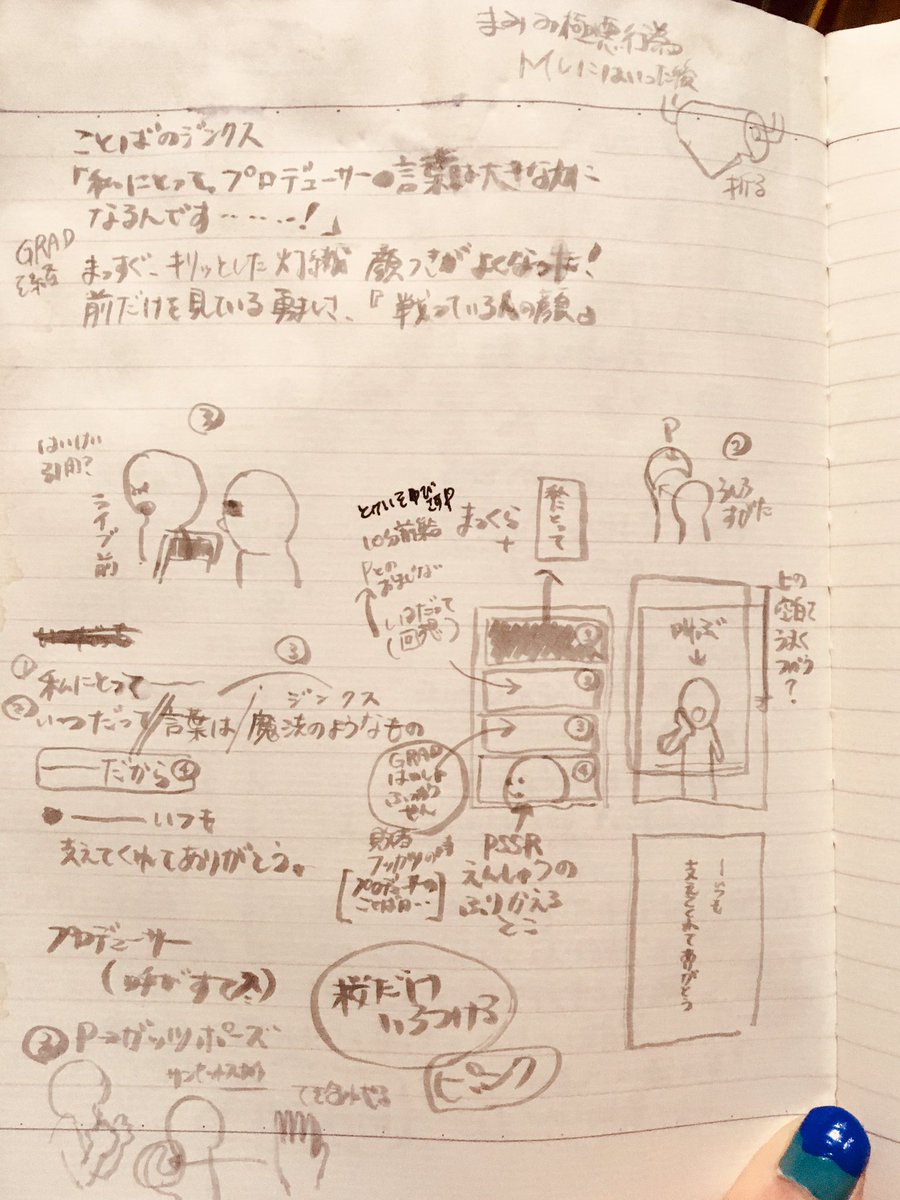 まみみ極悪行為
Mしにはいった後
折る
ことばのジンクス
「私にとって、プロデューサーの言葉は大きな力に
なるんです……!」
GRAD
まっすぐ、キリッとした灯織 顔つきがよくなった!
前だけを見ている勇ましさ、『戦っている人の顔』
③
はいけい
引用?
ライブ前
P
②
うしろ
すがた
10分前集合
Pとの
おまじない
いつだって
(回想)
まっくら
+
私にとって
①
②
③
④
叫ぶ
上の
空白で
うまく
つかう
?
① 私にとって——
③
ジンクス
② いつだって 言葉は 魔法のようなもの
——だから④
GRAD
はいしゃ
ふっかつ
せん
——いつも
支えてくれてありがとう。
敗者
フッカツの時
プロデューサーの
ことばは…
PSSR
えんしゅつの
ふりかえる
とこ
—いつも
支えてくれてありがとう
プロデューサー
(呼びすて入)
桜だけ
いろつける
ピンク
② P→ガッツポーズ
てを合わせる